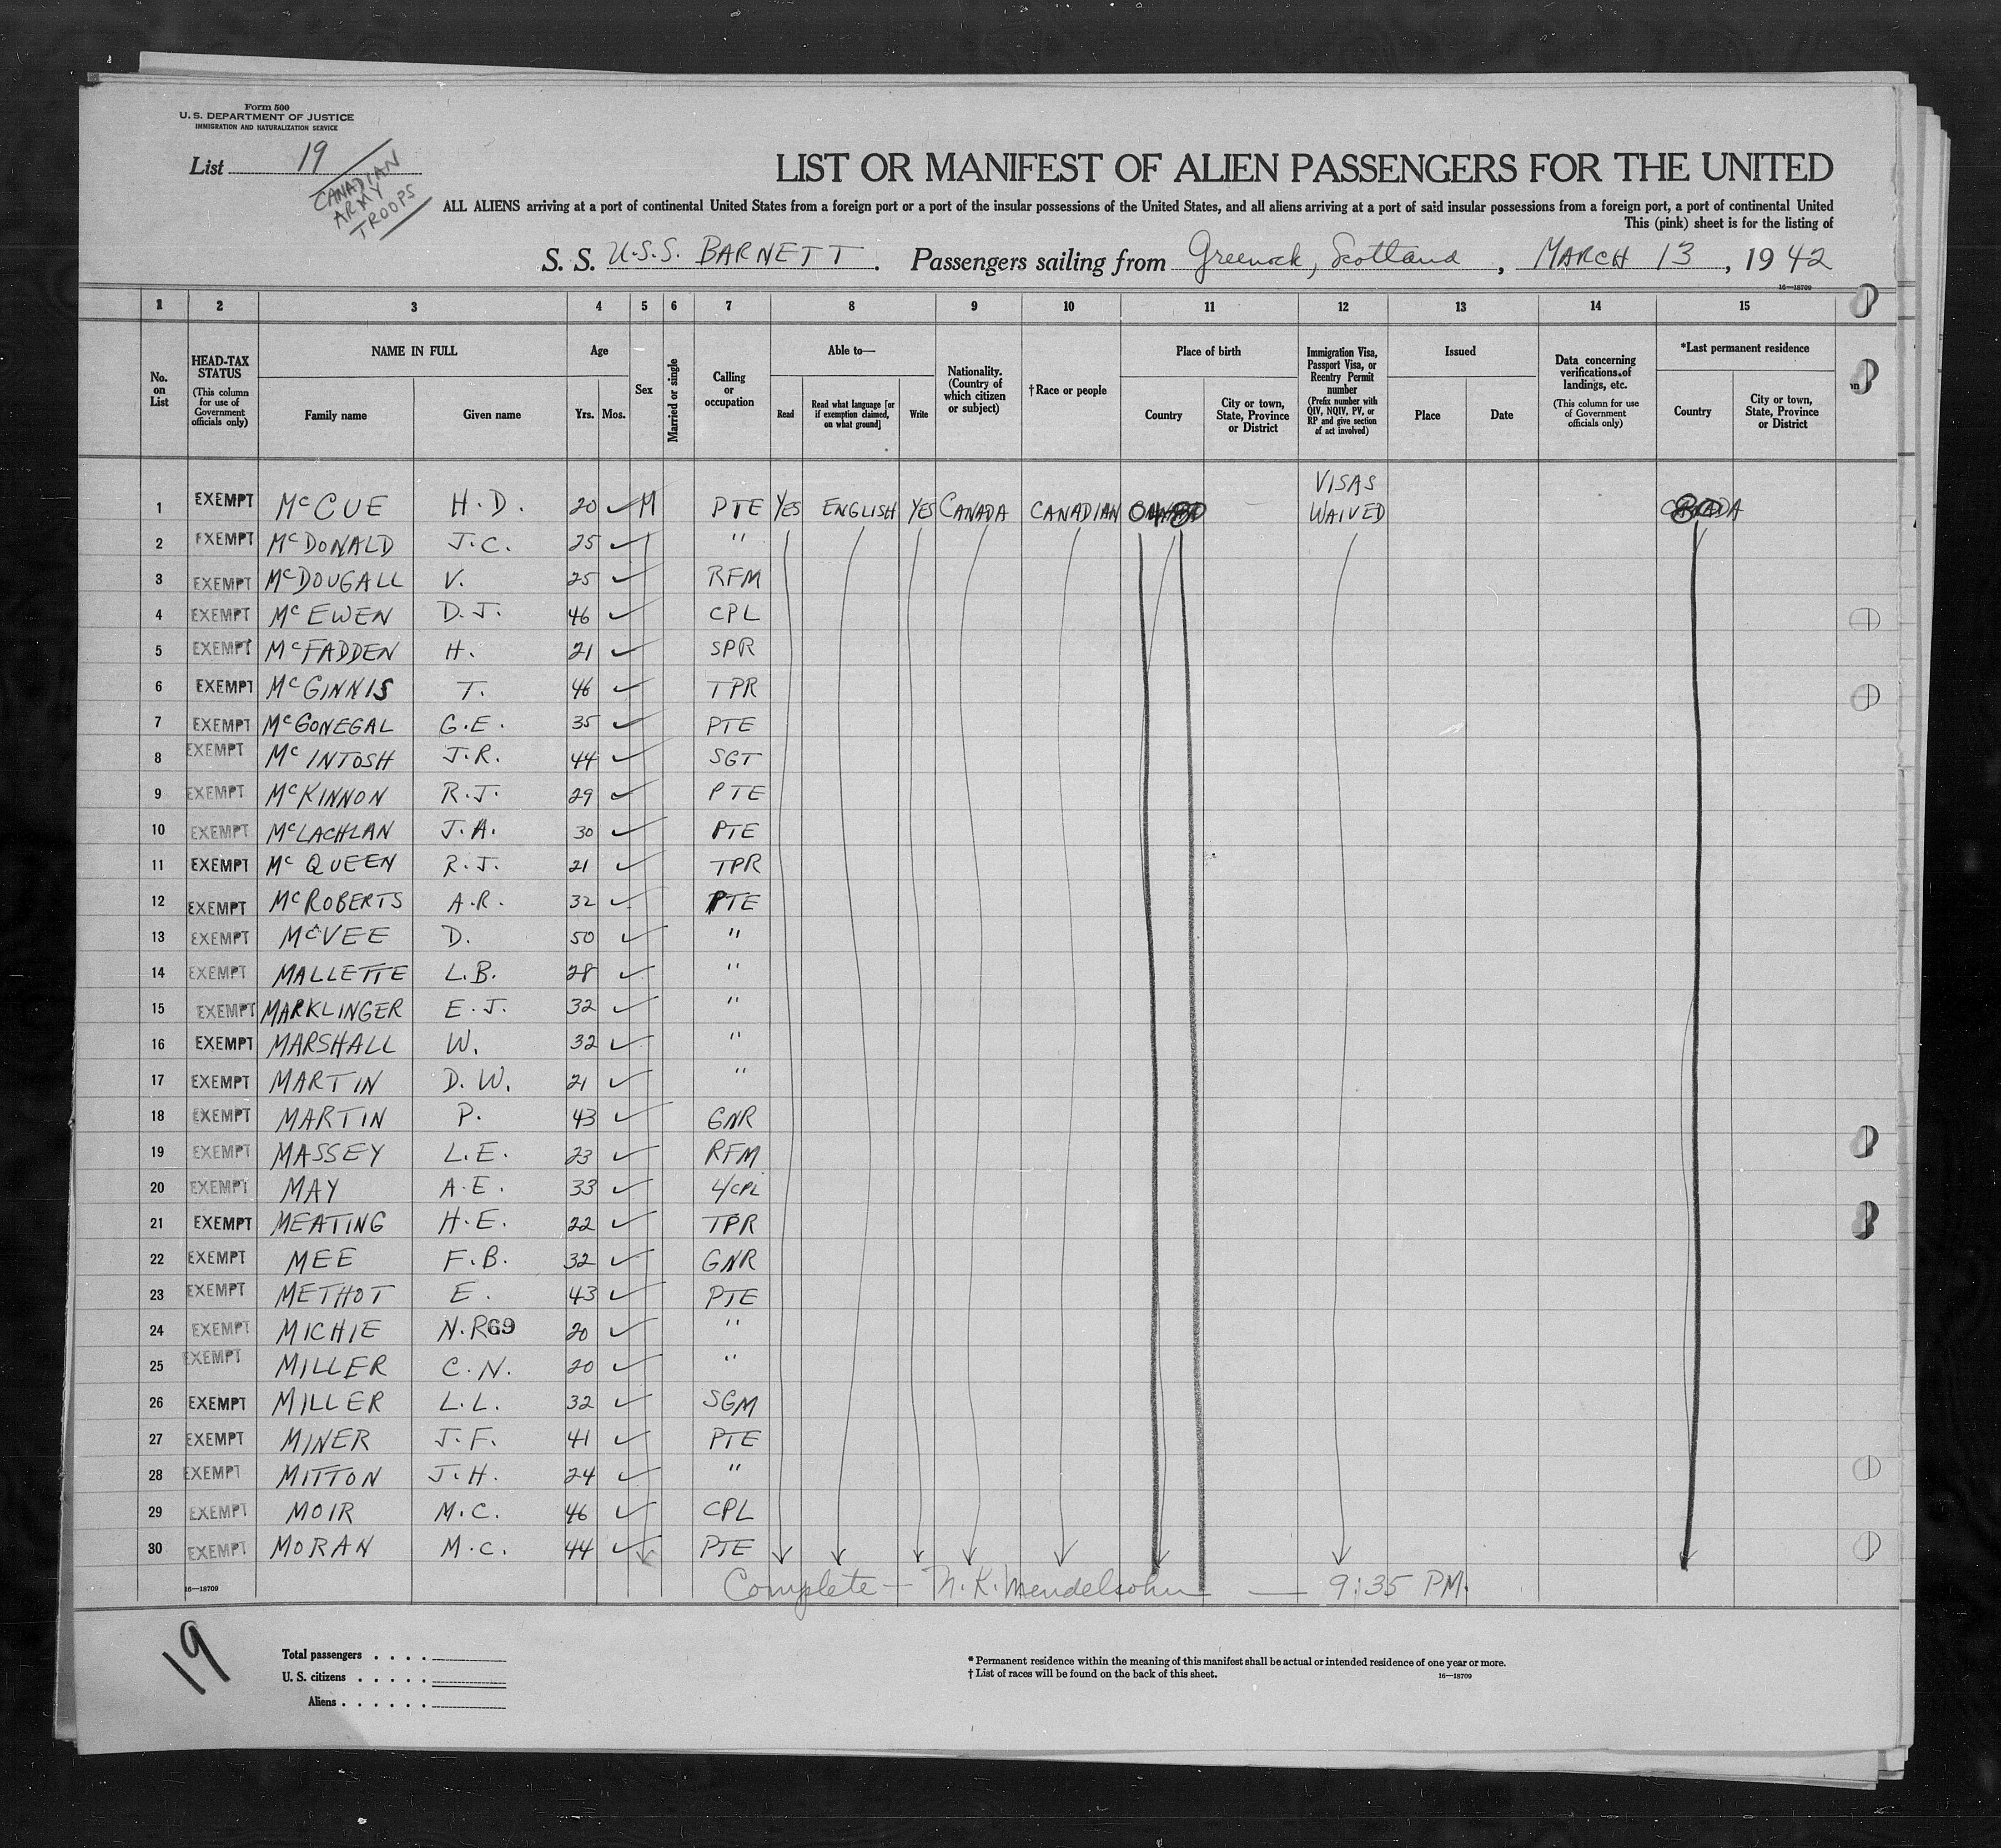 Form 500
U. S. DEPARTMENT OF JUSTICE
IMMIGRATION AND NATURALIZATION SERVICE
List 19
CANADIAN
ARMY
TROOPS
LIST OR MANIFEST OF ALIEN PASSENGERS FOR THE UNITED
ALL ALIENS arriving at a port of continental United States from a foreign port or a port of the insular possessions of the United States, and all aliens arriving at a port of said insular possessions from a foreign port, a port of continental United
This (pink) sheet is for the listing of
S. S. U.S.S. BARNETT. Passengers sailing from Greenock, Scotland, MARCH 13, 1942
16—18709
1 2 3 4 5 6 7 8 9 10 11 12 13 14 15
No. on List
HEAD-TAX STATUS (This column for use of Government officials only)
NAME IN FULL
Family name Given name
Age
Yrs. Mos.
Sex
Married or single
Calling or occupation
Able to—
Read Read what language [or if exemption claimed, on what ground] Write
Nationality. (Country of which citizen or subject)
† Race or people
Place of birth
Country City or town, State, Province or District
Immigration Visa, Passport Visa, or Reentry Permit number (Prefix number with QIV, NQIV, PV, or RP and give section of act involved)
Issued
Place Date
Data concerning verifications of landings, etc. (This column for use of Government officials only)
*Last permanent residence
Country City or town, State, Province or District
1 EXEMPT McCUE H.D. 20 M PTE YES ENGLISH YES CANADA CANADIAN VISAS WAIVED CANADA
2 EXEMPT McDONALD J.C. 25 "
3 EXEMPT McDOUGALL V. 25 RFM
4 EXEMPT McEWEN D.J. 46 CPL
5 EXEMPT McFADDEN H. 21 SPR
6 EXEMPT McGINNIS T. 46 TPR
7 EXEMPT McGONEGAL G.E. 35 PTE
8 EXEMPT McINTOSH J.R. 44 SGT
9 EXEMPT McKINNON R.J. 29 PTE
10 EXEMPT McLACHLAN J.A. 30 PTE
11 EXEMPT McQUEEN R.J. 21 TPR
12 EXEMPT McROBERTS A.R. 32 PTE
13 EXEMPT McVEE D. 50 "
14 EXEMPT MALLETTE L.B. 28 "
15 EXEMPT MARKLINGER E.J. 32 "
16 EXEMPT MARSHALL W. 32 "
17 EXEMPT MARTIN D.W. 21 "
18 EXEMPT MARTIN P. 43 GNR
19 EXEMPT MASSEY L.E. 23 RFM
20 EXEMPT MAY A.E. 33 L/CPL
21 EXEMPT MEATING H.E. 22 TPR
22 EXEMPT MEE F.B. 32 GNR
23 EXEMPT METHOT E. 43 PTE
24 EXEMPT MICHIE N.R 69 20 "
25 EXEMPT MILLER C.N. 20 "
26 EXEMPT MILLER L.L. 32 SGM
27 EXEMPT MINER J.F. 41 PTE
28 EXEMPT MITTON J.H. 24 "
29 EXEMPT MOIR M.C. 46 CPL
30 EXEMPT MORAN M.C. 44 PTE
16—18709
Complete — N.K. Mendelsohn — 9:35 PM.
19
Total passengers . . . .
U. S. citizens . . . . .
Aliens . . . . . .
* Permanent residence within the meaning of this manifest shall be actual or intended residence of one year or more.
† List of races will be found on the back of this sheet. 16—18709